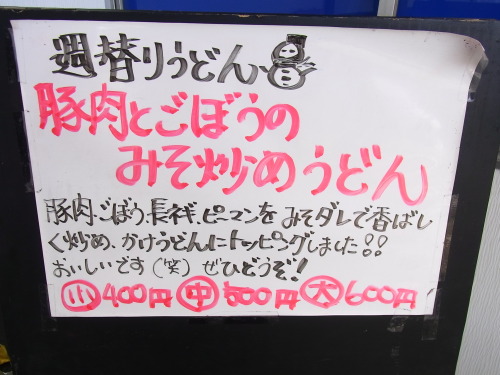 週替りうどん
豚肉とごぼうの
みそ炒めうどん
豚肉、ごぼう、長ネギ、ピーマンを みそダレで香ばし
く炒め、かけうどんにトッピングしました!!
おいしいです(笑) ぜひどうぞ!
小400円 中500円 大600円